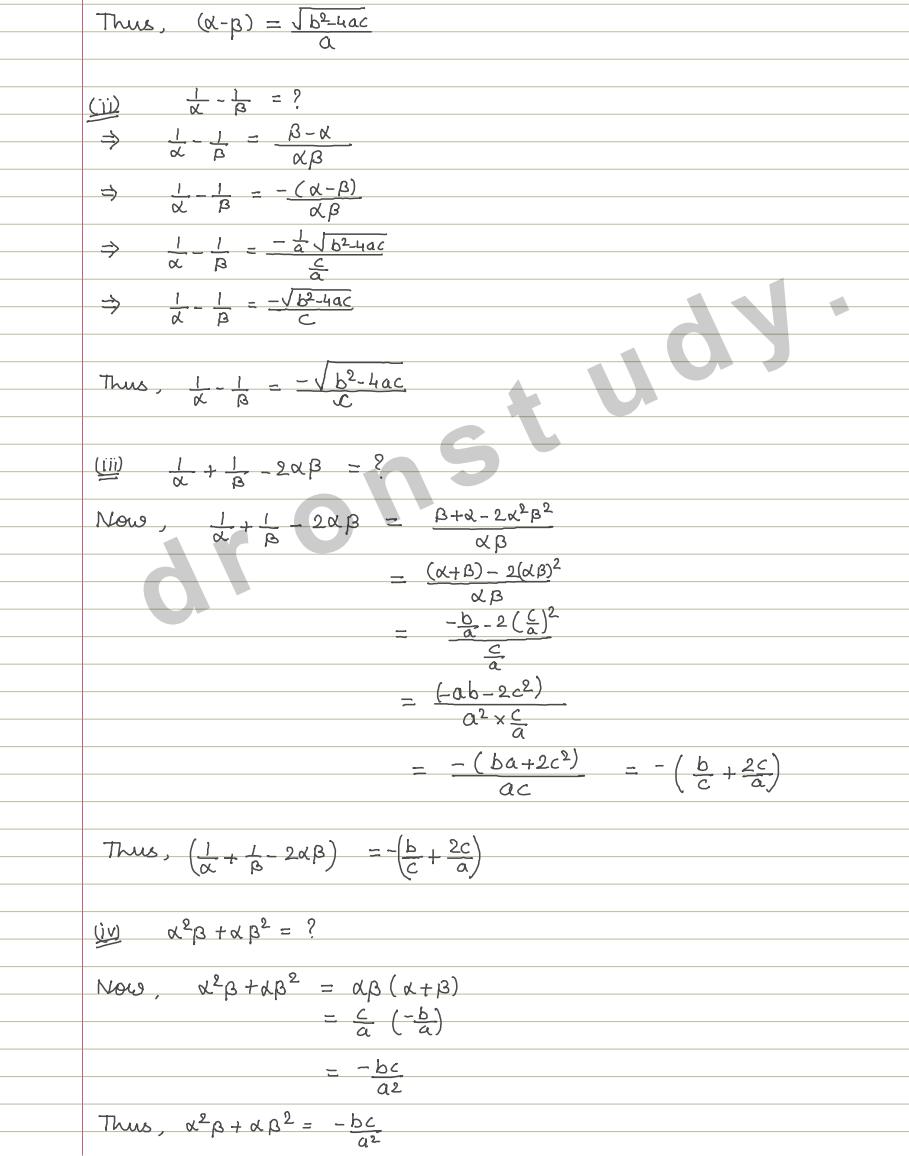 Thus, (α-β) = √b²-4ac / a
(ii) 1/α - 1/β = ?
⇒ 1/α - 1/β = β-α / αβ
⇒ 1/α - 1/β = -(α-β) / αβ
⇒ 1/α - 1/β = -1/a √b²-4ac / c/a
⇒ 1/α - 1/β = -√b²-4ac / c
Thus, 1/α - 1/β = -√b²-4ac / c
(iii) 1/α + 1/β - 2αβ = ?
Now, 1/α + 1/β - 2αβ = β+α-2α²β² / αβ
= (α+β) - 2(αβ)² / αβ
= -b/a - 2(c/a)² / c/a
= (-ab-2c²) / a² × c/a
= -(ba+2c²) / ac = -(b/c + 2c/a)
Thus, (1/α + 1/β - 2αβ) = -(b/c + 2c/a)
(iv) α²β + αβ² = ?
Now, α²β + αβ² = αβ(α+β)
= c/a (-b/a)
= -bc / a²
Thus, α²β + αβ² = -bc / a²
dronstudy.